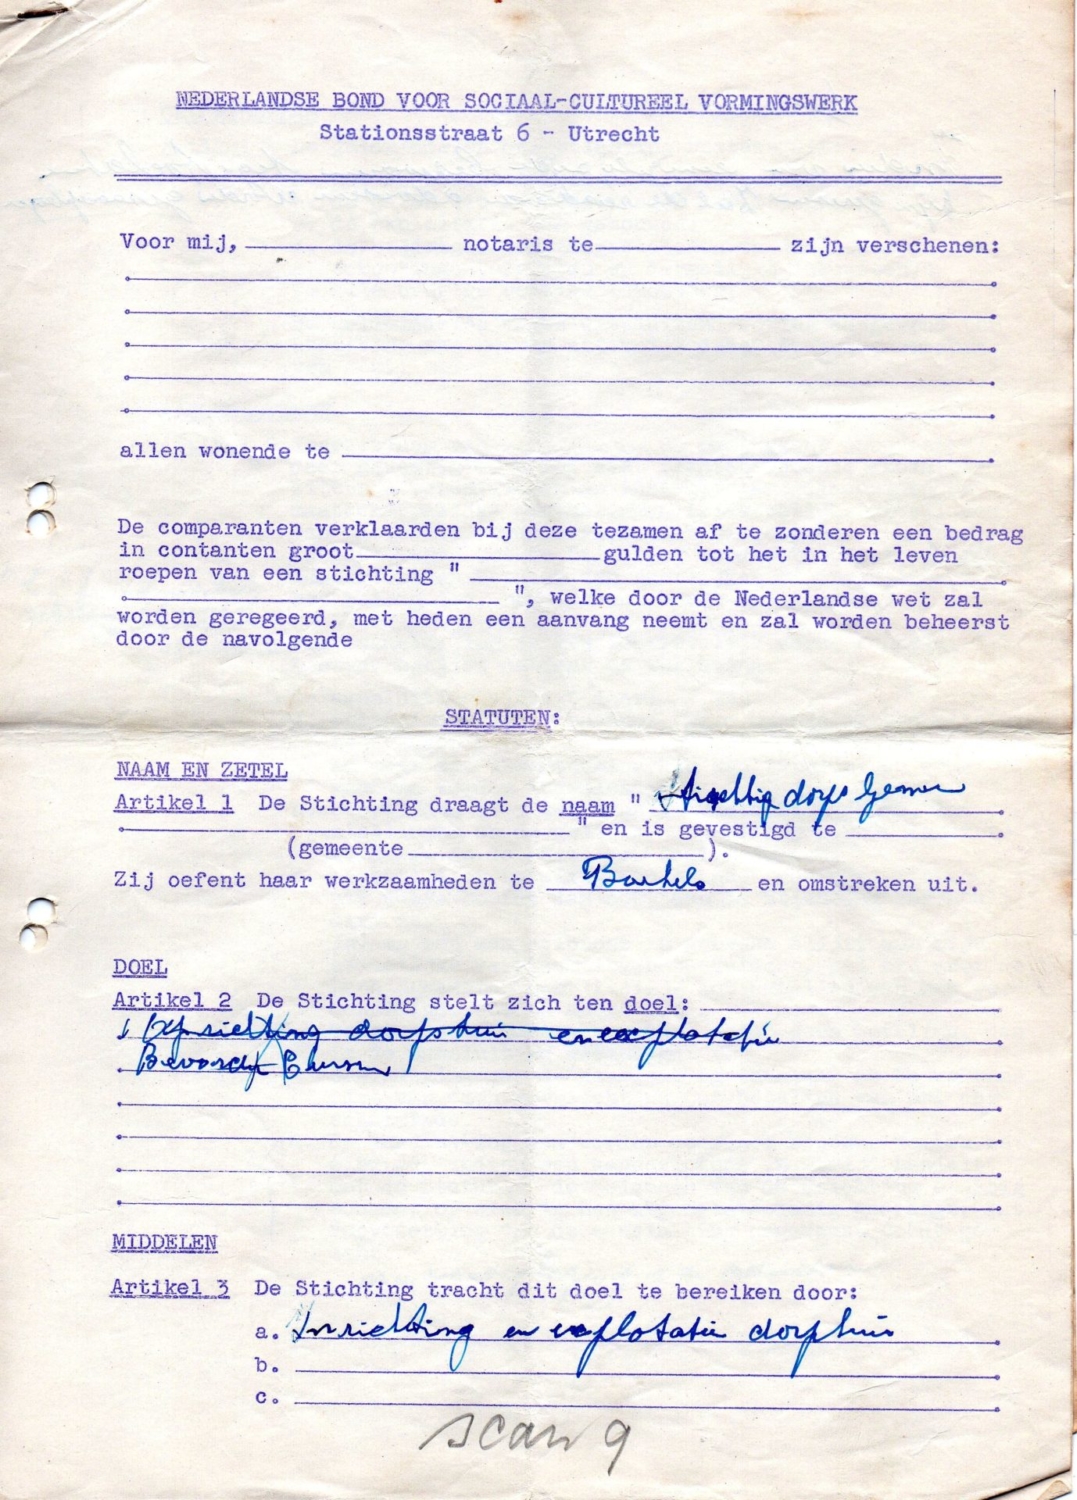 NEDERLANDSE BOND VOOR SOCIAAL-CULTUREEL VORMINGSWERK
Stationsstraat 6 - Utrecht
Voor mij, notaris te zijn verschenen:
allen wonende te
De comparanten verklaarden bij deze tezamen af te zonderen een bedrag
in contanten groot gulden tot het in het leven
roepen van een stichting "
", welke door de Nederlandse wet zal
worden geregeerd, met heden een aanvang neemt en zal worden beheerst
door de navolgende
STATUTEN:
NAAM EN ZETEL
Artikel 1 De Stichting draagt de naam " dorps
" en is gevestigd te
(gemeente ).
Zij oefent haar werkzaamheden te en omstreken uit.
DOEL
Artikel 2 De Stichting stelt zich ten doel:
dorpshuis en exploitatie
MIDDELEN
Artikel 3 De Stichting tracht dit doel te bereiken door:
a. Inrichting en exploitatie dorpshuis
b.
c.
scan 9